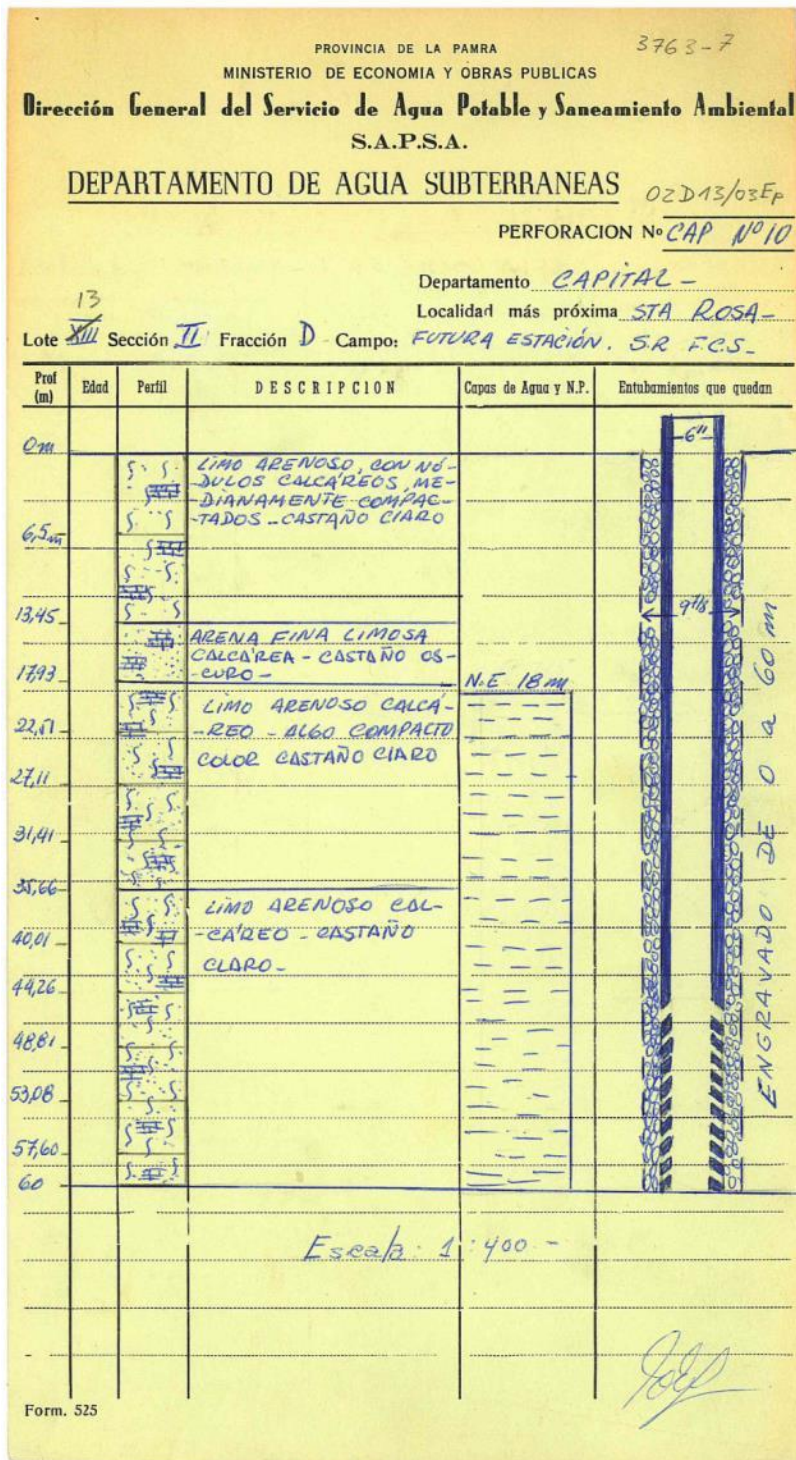 3763-7
PROVINCIA DE LA PAMRA
MINISTERIO DE ECONOMIA Y OBRAS PUBLICAS
Dirección General del Servicio de Agua Potable y Saneamiento Ambiental
S.A.P.S.A.
DEPARTAMENTO DE AGUA SUBTERRANEAS
02D13/03Ep
PERFORACION Nº CAP Nº 10
Departamento CAPITAL -
Localidad más próxima STA ROSA -
13
Lote XIII Sección II Fracción D Campo: FUTURA ESTACIÓN. S.R F.C.S-
Prof (m) Edad Perfil DESCRIPCION Capas de Agua y N.P. Entubamientos que quedan
0m
6"
LIMO ARENOSO, CON NÓ-
-DULOS CALCÁREOS, ME-
-DIANAMENTE COMPAC-
-TADOS - CASTAÑO CLARO
6,5m
9 7/8
13,45
ARENA FINA LIMOSA
CALCÁREA - CASTAÑO OS-
-CURO -
17,93
N.E 18 m
LIMO ARENOSO CALCÁ-
-REO - ALGO COMPACTO
COLOR CASTAÑO CLARO
22,51
27,11
31,41
35,66
LIMO ARENOSO CAL-
-CÁREO - CASTAÑO
CLARO -
40,01
44,26
48,81
53,08
57,60
60
ENGRAVADO DE 0 a 60 m
Escala 1:400 -
Form. 525